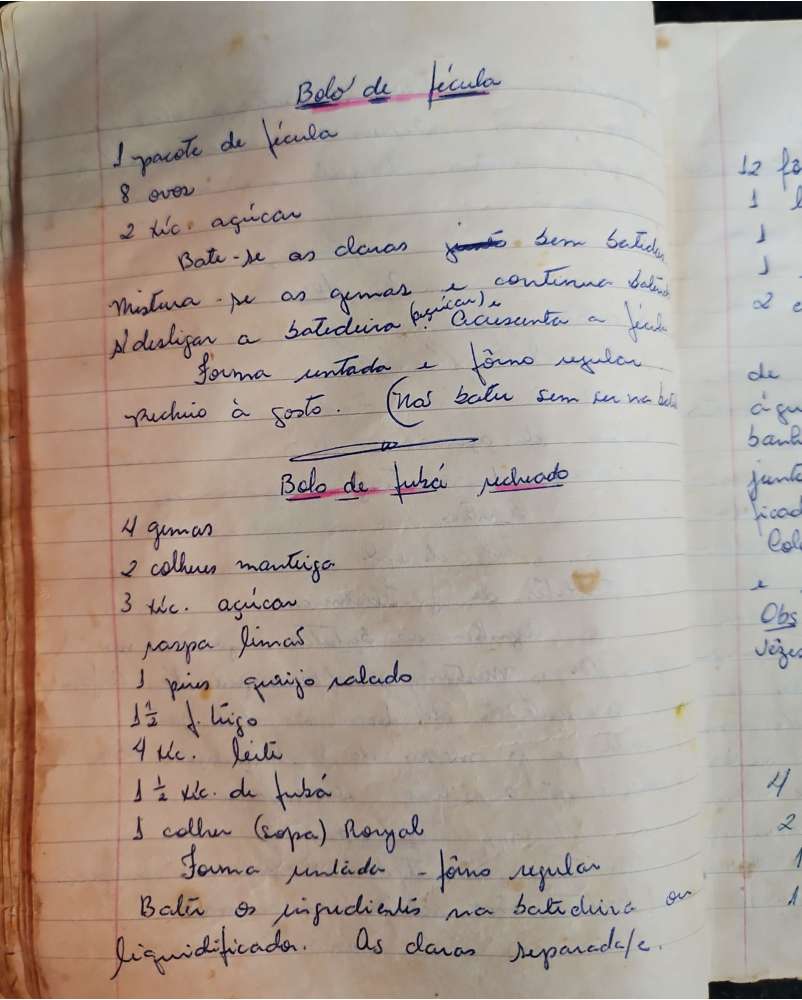 Bolo de fécula
1 pacote de fécula
8 ovos
2 xíc. açúcar
Bate-se as claras bem batidas
Mistura-se as gemas e continua batendo
(açúcar) e
desligar a batedeira. Acrescenta a fécula
Forma untada e fôrno regular
recheio à gosto. (Não bater sem ser na bat
Bolo de fubá recheado
4 gemas
2 colheres manteiga
3 xíc. açúcar
raspa limão
1 pires queijo ralado
1 1/2 f. trigo
4 xíc. leite
1 1/2 xíc. de fubá
1 colher (sopa) Royal
Forma untada - fôrno regular
Bater os ingredientes na batedeira ou
liquidificador. As claras separada/e.
12
1
1
1
2
de
banh
junta
ficad
Colo
e
Obs
Vêzes
4
2
1
1